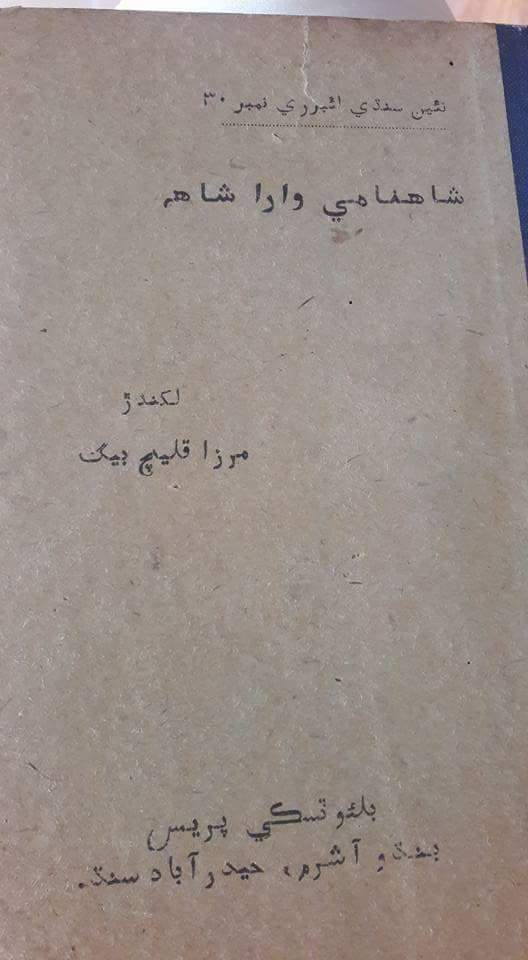 نئين سنڌي لئبرري نمبر ۳۰
شاهنامي وارا شاهہ
لکندڙ
مرزا قليچ بيگ
بلئوٽسڪي پريس
بنڌو آشرم، حيدرآباد سنڌ.